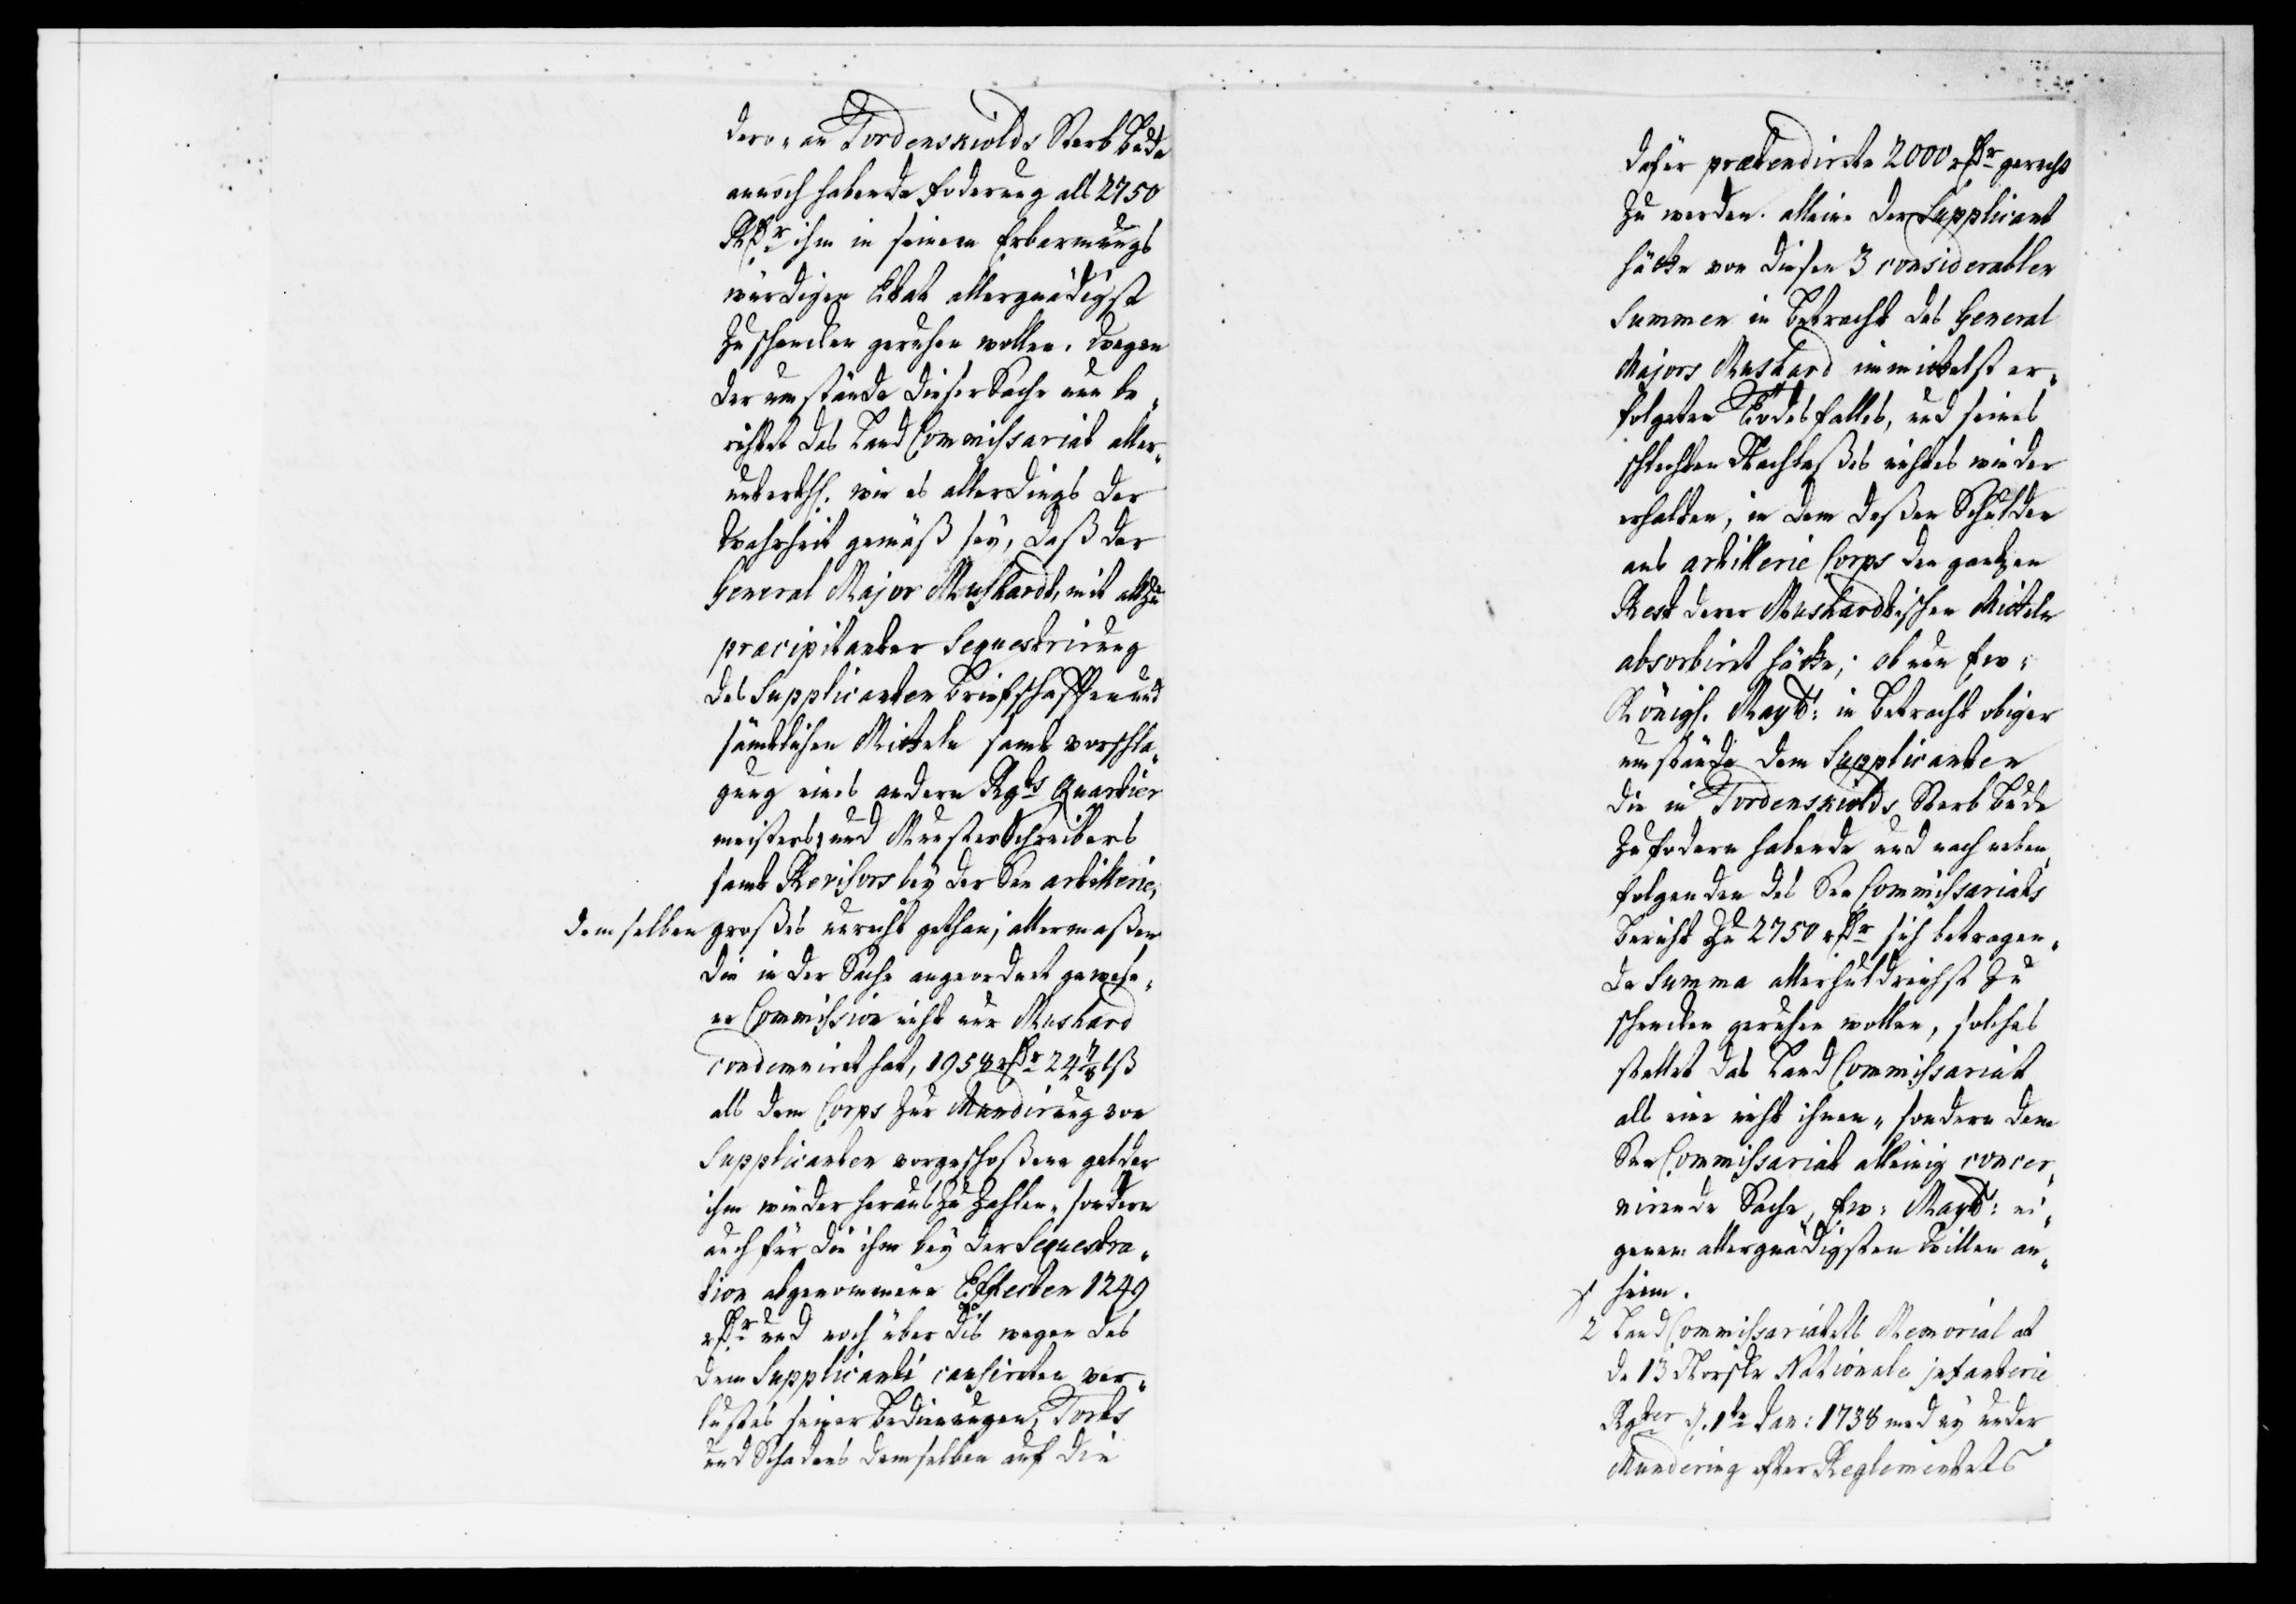 dero an Tordenskiolds Sterb Bude
annoch habende foderung als 2750
Rdr ihm in seinem Erbarmungs
würdigen Etat allergnädigst
zu schencken geruhen wollen. Wegen
der umstände dieser Sache nun be¬
richtet das Land Commissariat aller¬
unterth. wie es allerdings der
Wahrheit gemäß seÿ, daß der
General Major Mushardt, mit allzu
præcipitanter Sequestrirung
des Supplicanten Briefschafften und
sämtlichen Mitteln samt vorschla¬
gung eines andern Rgts Quartier
meisters, und MunsterSchreibers
samt Revisors beÿ der See artillerie,
demselben großes unrecht gethan, allermaßen
die in der Sache angeordnet gewese¬
ne Commission nicht nur Mushard
condemniret hat, 1958 rdr 24 7/8 lß
als dem Corps zur Mundirung von
Supplicanten vorgeschoßene gelder
ihm wieder heraus zu zahlen, sondern
auch für die ihm beÿ der Sequestra¬
tion abgenommene Effecten 1249
rdr und noch über dis wegen des
dem Supplicanti causirten ver¬
lustes seiner Bedienungen, Torts
und Schadens demselben auf die
dafür prætendirte 2000 rdr gerecht
zu werden. alleine der Supplicant
hätte von diesen 3 considerablen
Summen in betracht des General
Majors Mushard immittelst er¬
folgeten Todesfalles, und seines
schlechten Nachlaßes nichtes wieder
erhalten, in dem deßen Schulden
ans artillerie Corps den gantzen
Rest derer Mushardtischen Mitteln
absorbiret hätte; ob nun Ew:
Königl. Maytt: in betracht obiger
umstände dem Supplicanten
die in Tordenskiolds Sterb Bude
zu fodern habende und nach neben
folgenden des See Commissariats
Bericht zu 2750 rdr sich betragen¬
de Summa allerhuldreichst zu
schencken geruhen wollen, solches
stellet das Land Commissariat
als eine nicht ihnen, sondern dem
See Commissariat alleinig concer¬
nirende Sache, Ew: Maytt: ei¬
genem allergnädigsten Willen an¬
heim.
2 Land Commissariatets Memorial at
de 13 Norske Nationale jnfanterie
Rgter d. 1te Jan: 1738 med nÿ under
Mundering efter Reglementets